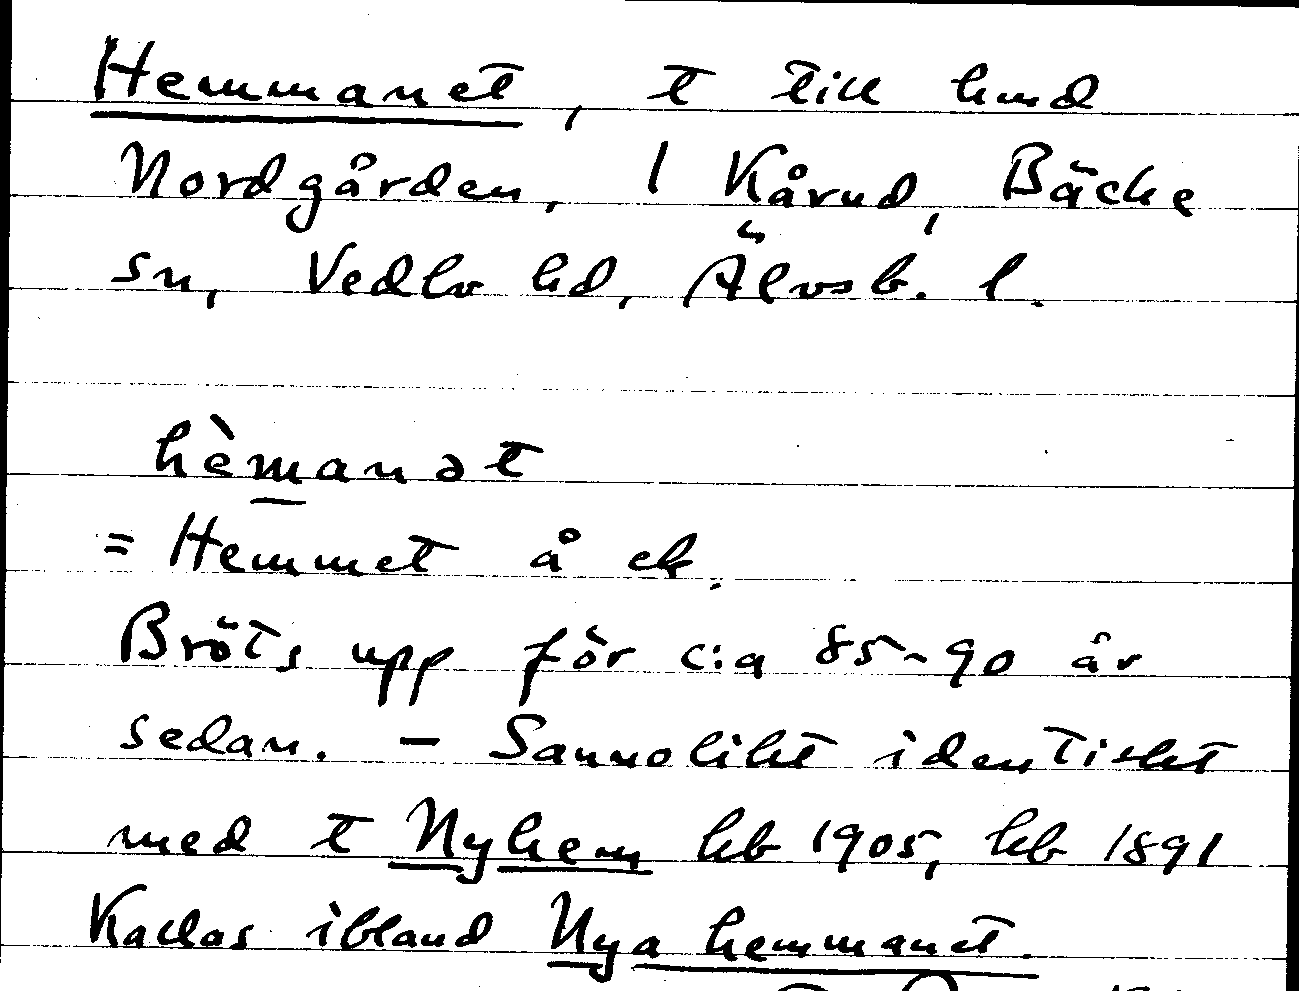 Hemmanet, t till hmd
Nordgården, 1 Kårud, Bäcke
sn, Vedbo hd, Älvsb. l.
hèmanət
= Hemmet å ek.
Bröts upp för c:a 85-90 år
sedan. — Sannolikt identiskt
med t Nyhem hfb 1905, hfb 1891
Kallas ibland Nya hemmanet.